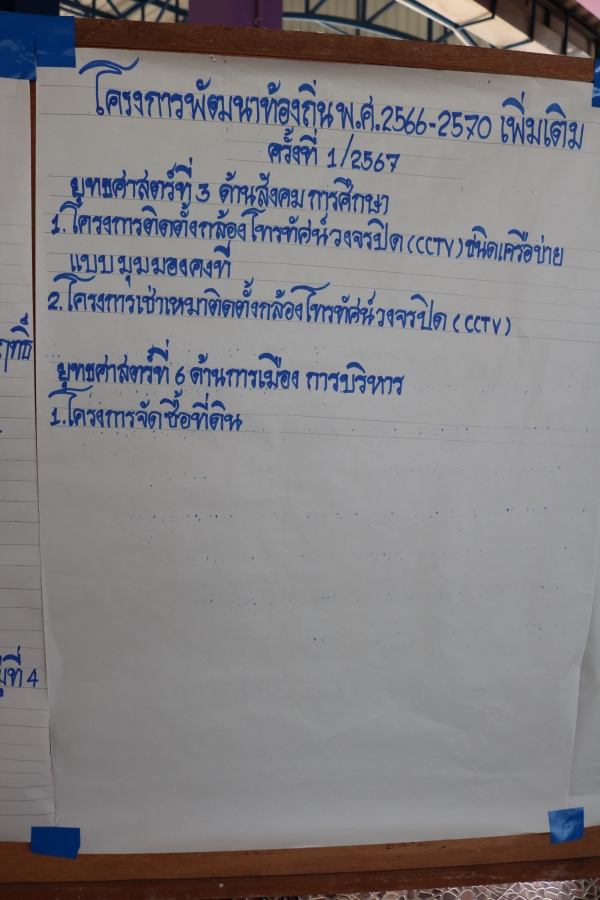 โครงการพัฒนาท้องถิ่น พ.ศ.2566-2570 เพิ่มเติม
ครั้งที่ 1/2567
ยุทธศาสตร์ที่ 3 ด้านสังคม การศึกษา
1.โครงการติดตั้งกล้องโทรทัศน์วงจรปิด (CCTV) ชนิดเครือข่าย
แบบมุมมองคงที่
2.โครงการเช่าเหมาติดตั้งกล้องโทรทัศน์วงจรปิด (CCTV)
ยุทธศาสตร์ที่ 6 ด้านการเมือง การบริหาร
1.โครงการจัดซื้อที่ดิน
ที่ 4